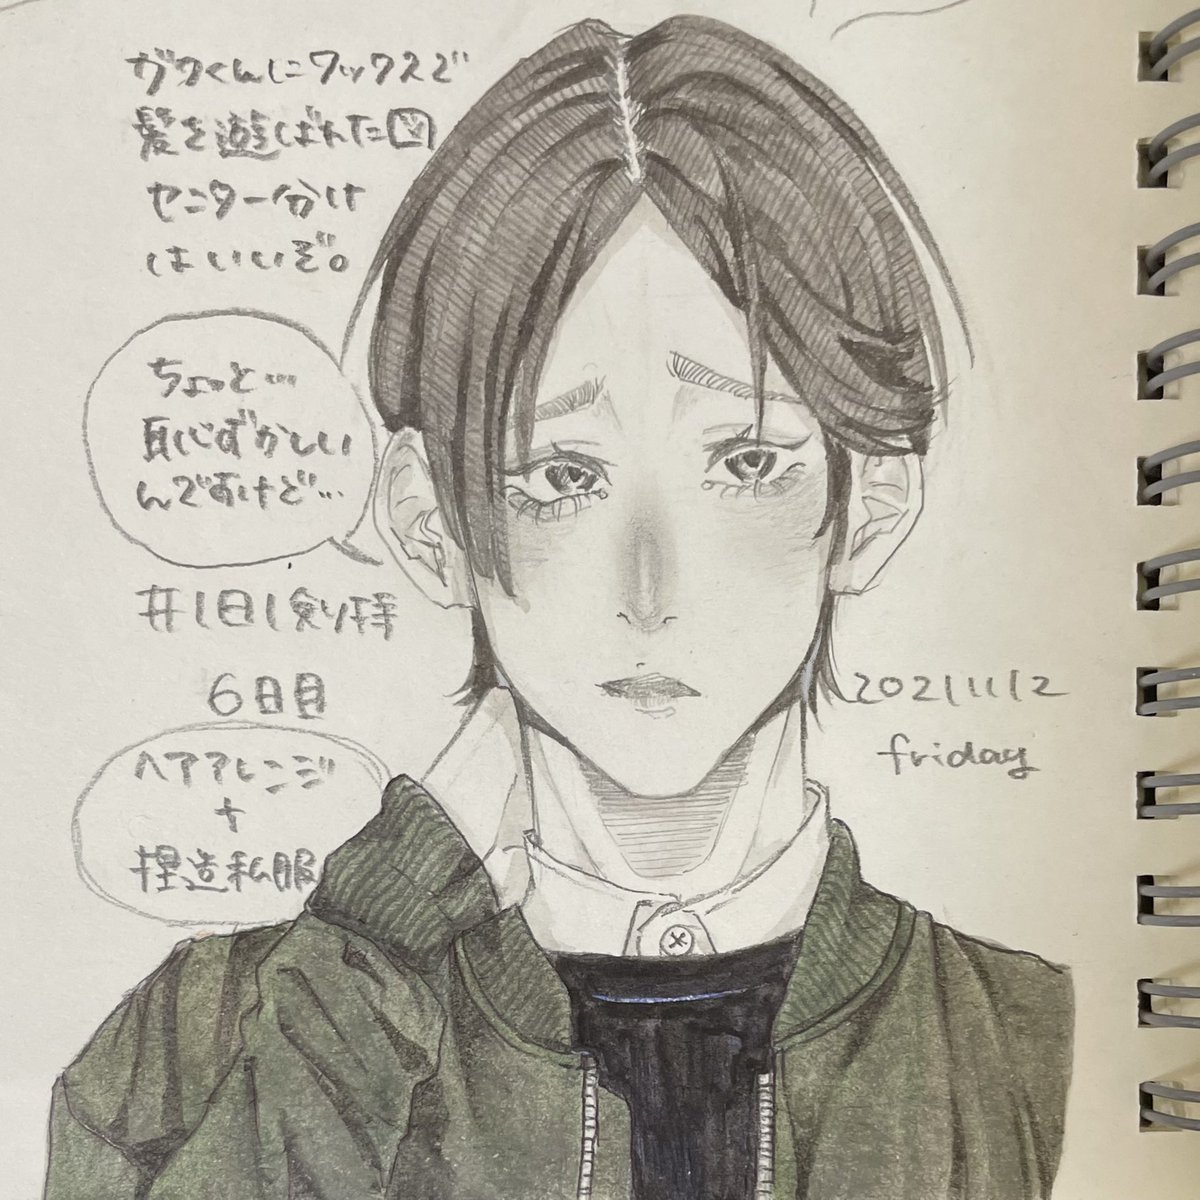 ガクくんにワックスで
髪を遊ばれた図
センター分け
はいいぞ。
ちょっと…
恥ずかしい
んですけど…
#1日1剣持
6日目
ヘアアレンジ
+
捏造私服
2021/11/12
friday